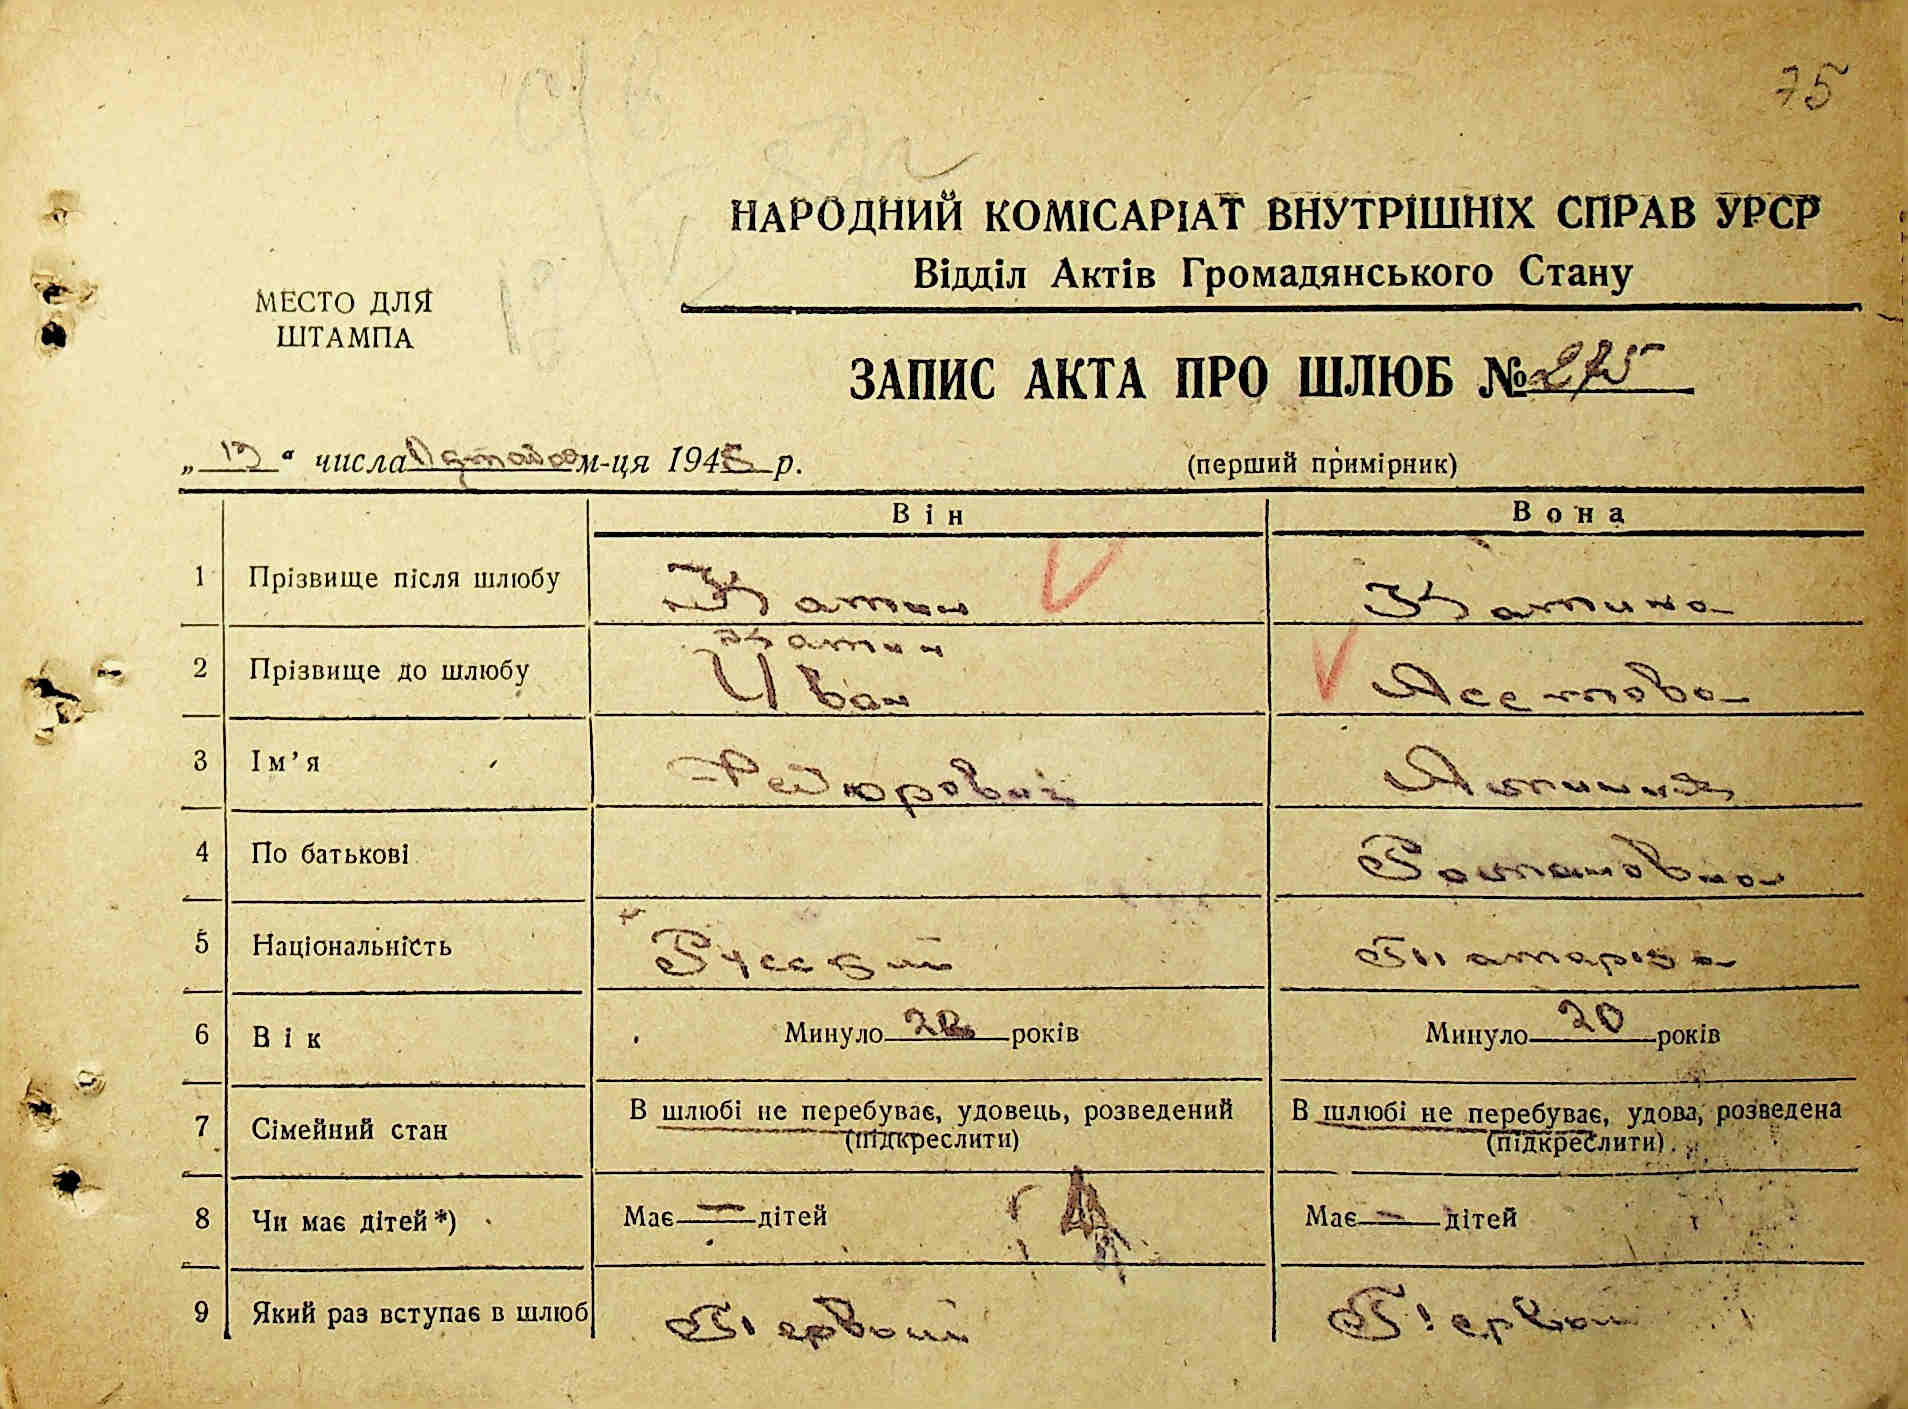 75
НАРОДНИЙ КОМІСАРІАТ ВНУТРІШНІХ СПРАВ УРСР
Відділ Актів Громадянського Стану
МЕСТО ДЛЯ
ШТАМПА
ЗАПИС АКТА ПРО ШЛЮБ № 275
„ " числа м-ця 1945 р.
(перший примірник)
Він Вона
1 Прізвище після шлюбу Катин Катина
Катин
2 Прізвище до шлюбу Иван
3 Ім'я Федорович
4 По батькові Романовна
5 Національність Русский Татарка
6 Вік Минуло років Минуло 20 років
7 Сімейний стан В шлюбі не перебуває, удовець, розведений В шлюбі не перебуває, удова, розведена
(підкреслити) (підкреслити).
8 Чи має дітей*) Має — дітей Має — дітей
9 Який раз вступає в шлюб Первый Первый